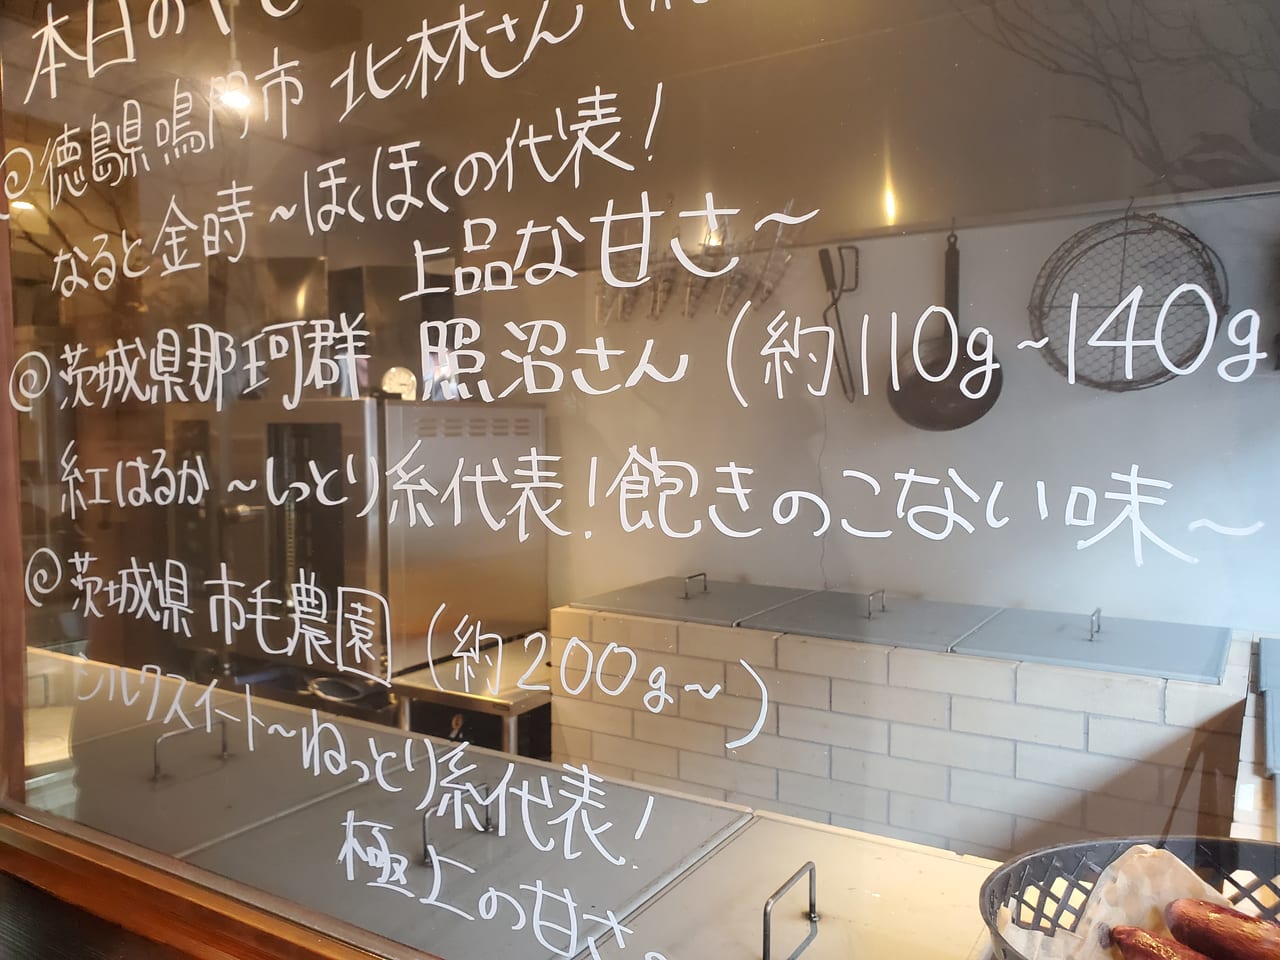 本日のやき
@徳島県鳴門市 北林さん（約
なると金時～ほくほくの代表！
上品な甘さ～
@茨城県那珂群 照沼さん（約110g～140g
紅はるか～しっとり系代表！飽きのこない味～
@茨城県 市毛農園（約200g～）
シルクスイート～ねっとり系代表！
極上の甘さ。